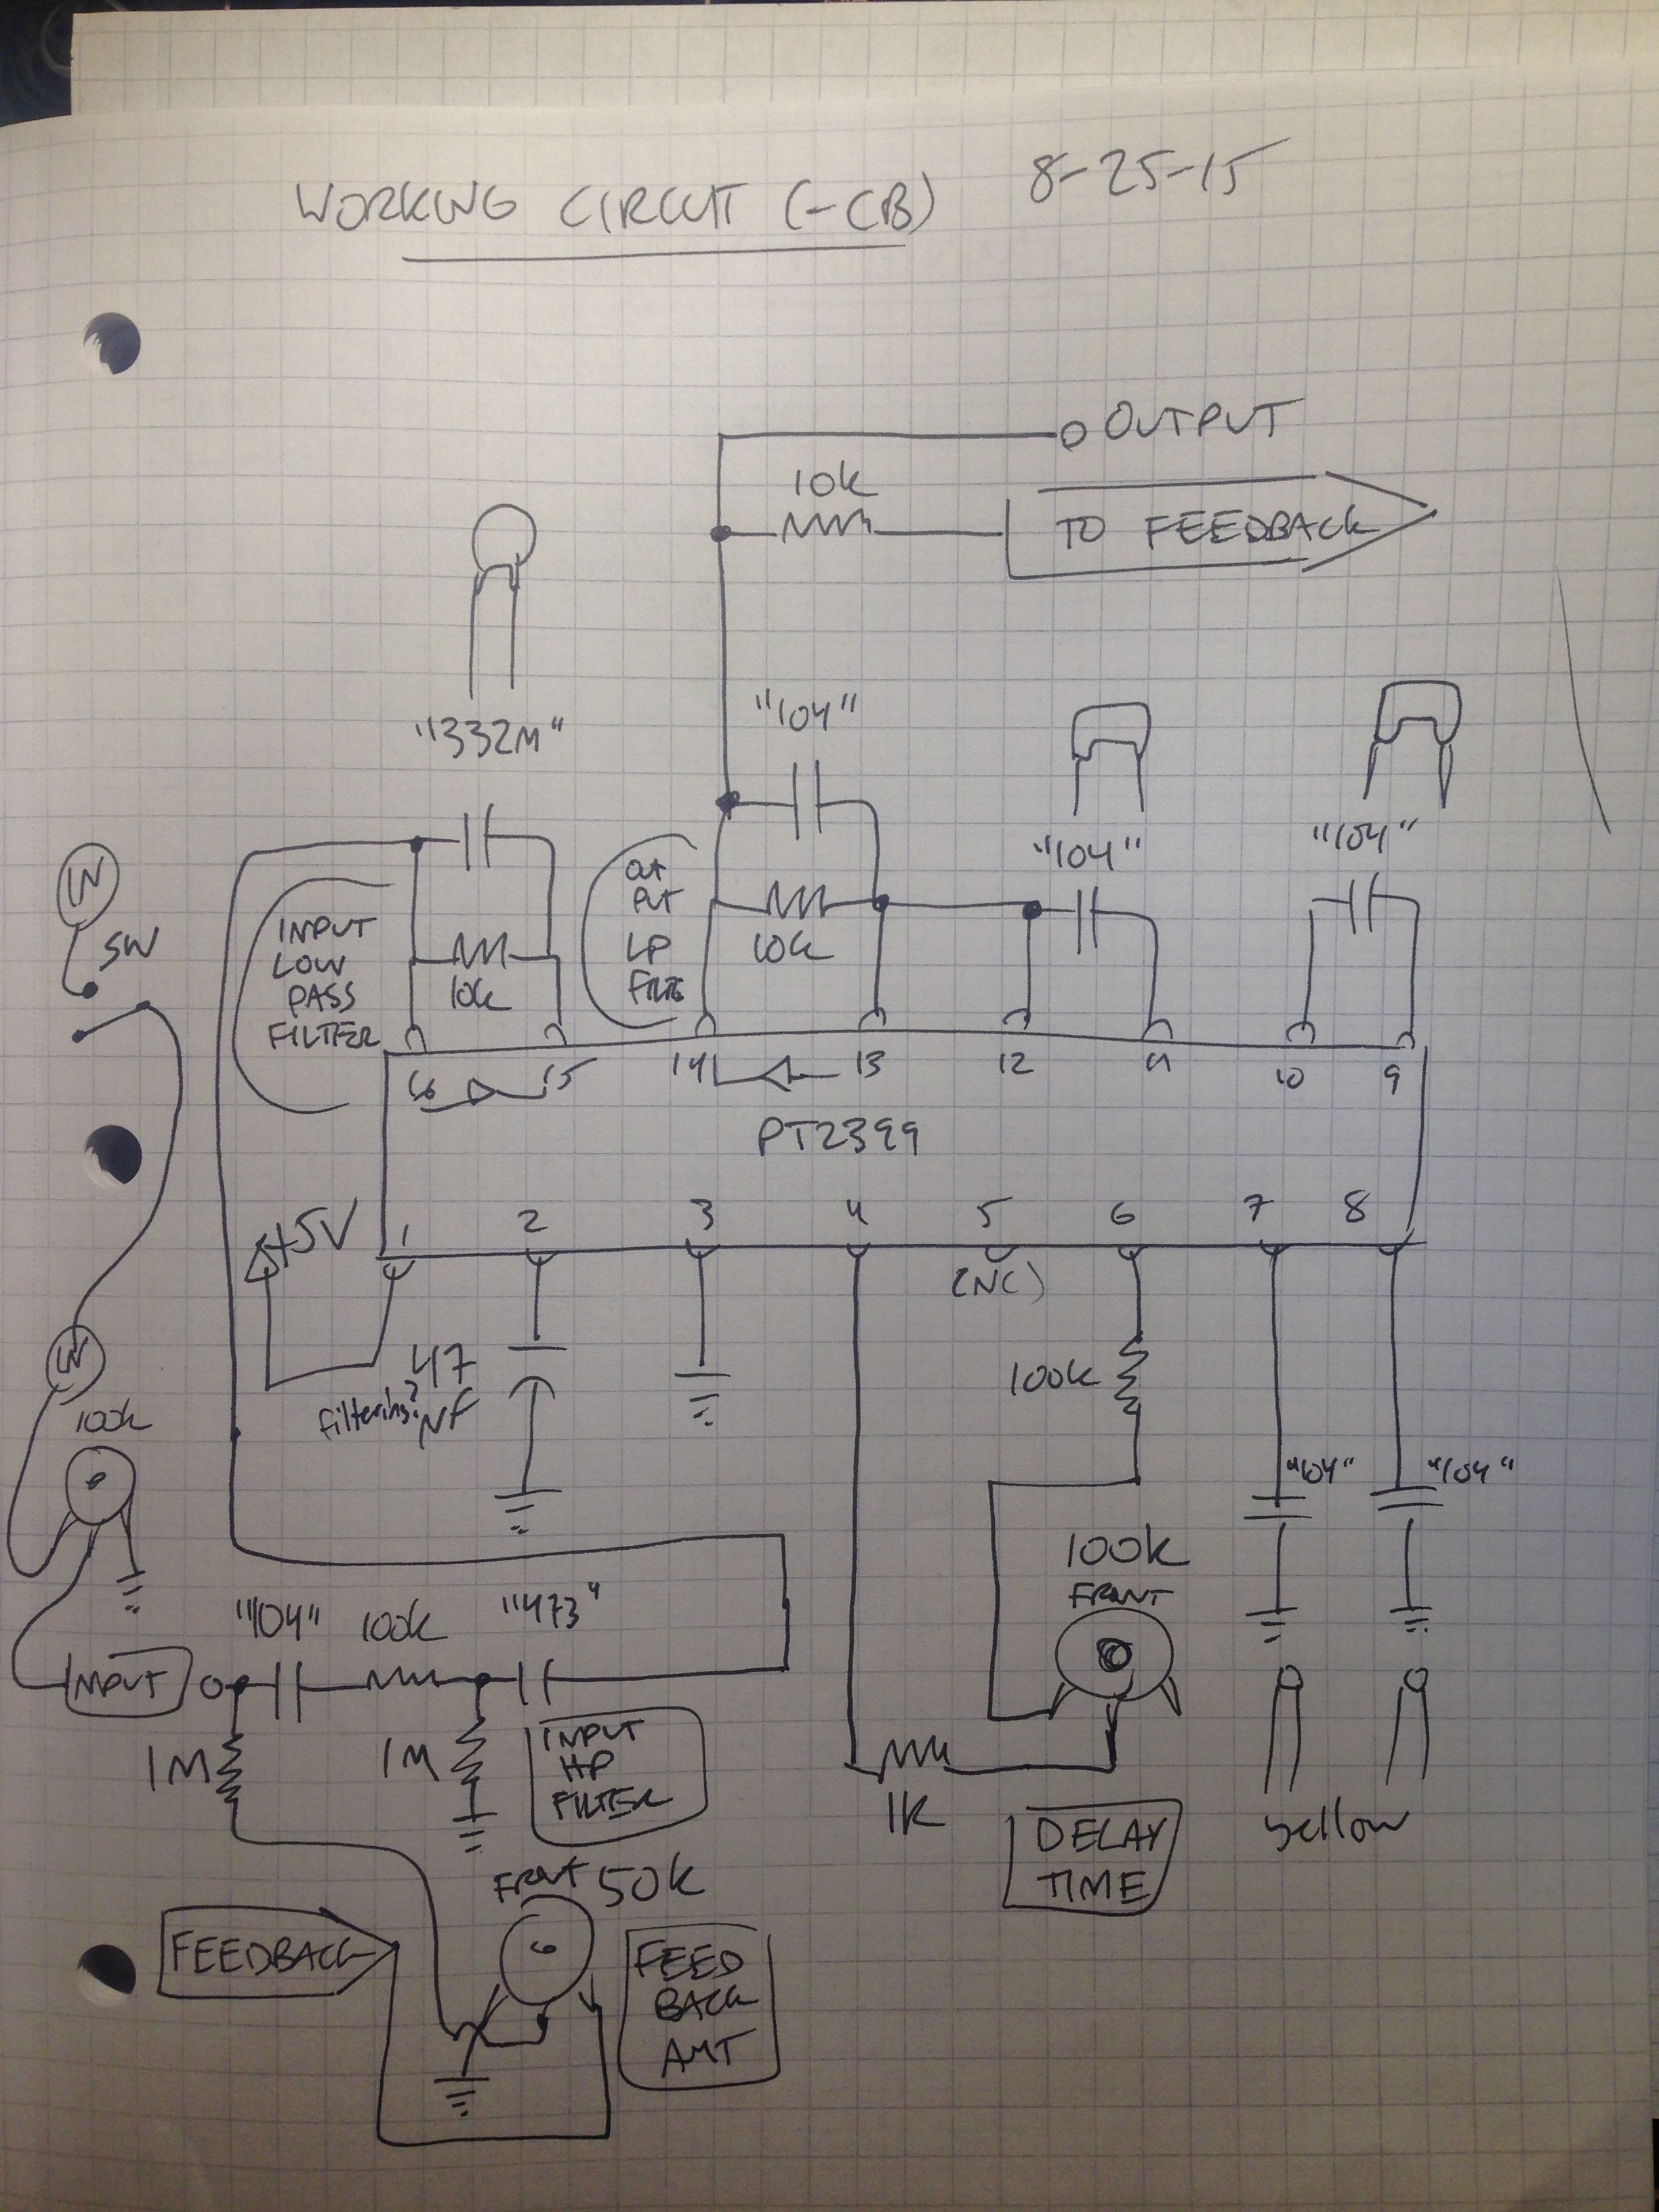 WORKING CIRCUIT (-CB) 8-25-15
OUTPUT
10k
TO FEEDBACK
"332M"
"104"
"104"
"104"
IN
SW
INPUT
LOW
PASS
FILTER
10k
OUT
PUT
LP
FILTE
10k
16 15 14 13 12 11 10 9
PT2399
+5V
1 2 3 4 5 6 7 8
(NC)
47
NF
filtering?
100k
IN
100k
"104" "104"
100k
FRONT
"104" 100k "473"
INPUT
1M
1M
INPUT
HP
FILTER
1K
DELAY
TIME
yellow
FRONT 50K
FEEDBACK
FEED
BACK
AMT